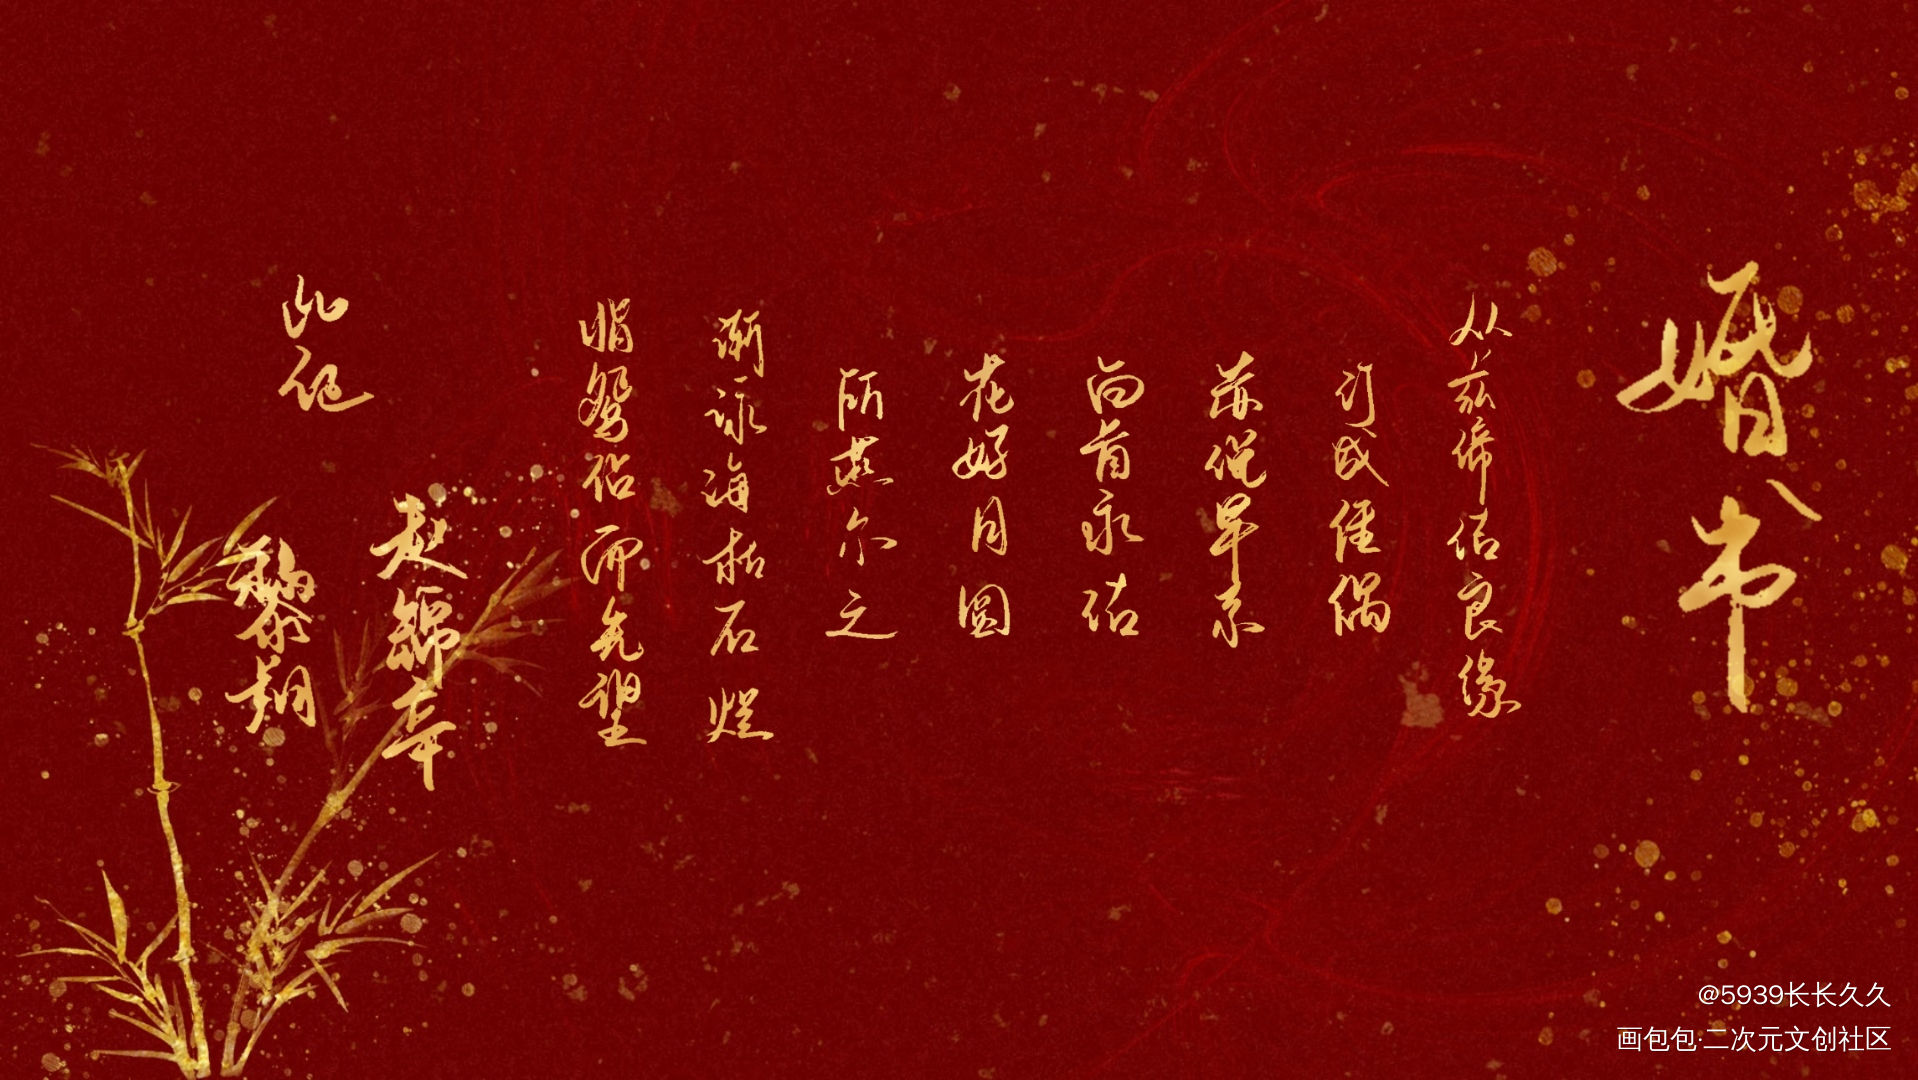 婚书
从兹缔结良缘
订成佳偶
赤绳早系
白首永结
花好月圆
欣燕尔之
将泳海枯石烂
指鸳侣而先盟
此
赵锦辛
黎朔
@5939长长久久
画包包·二次元文创社区